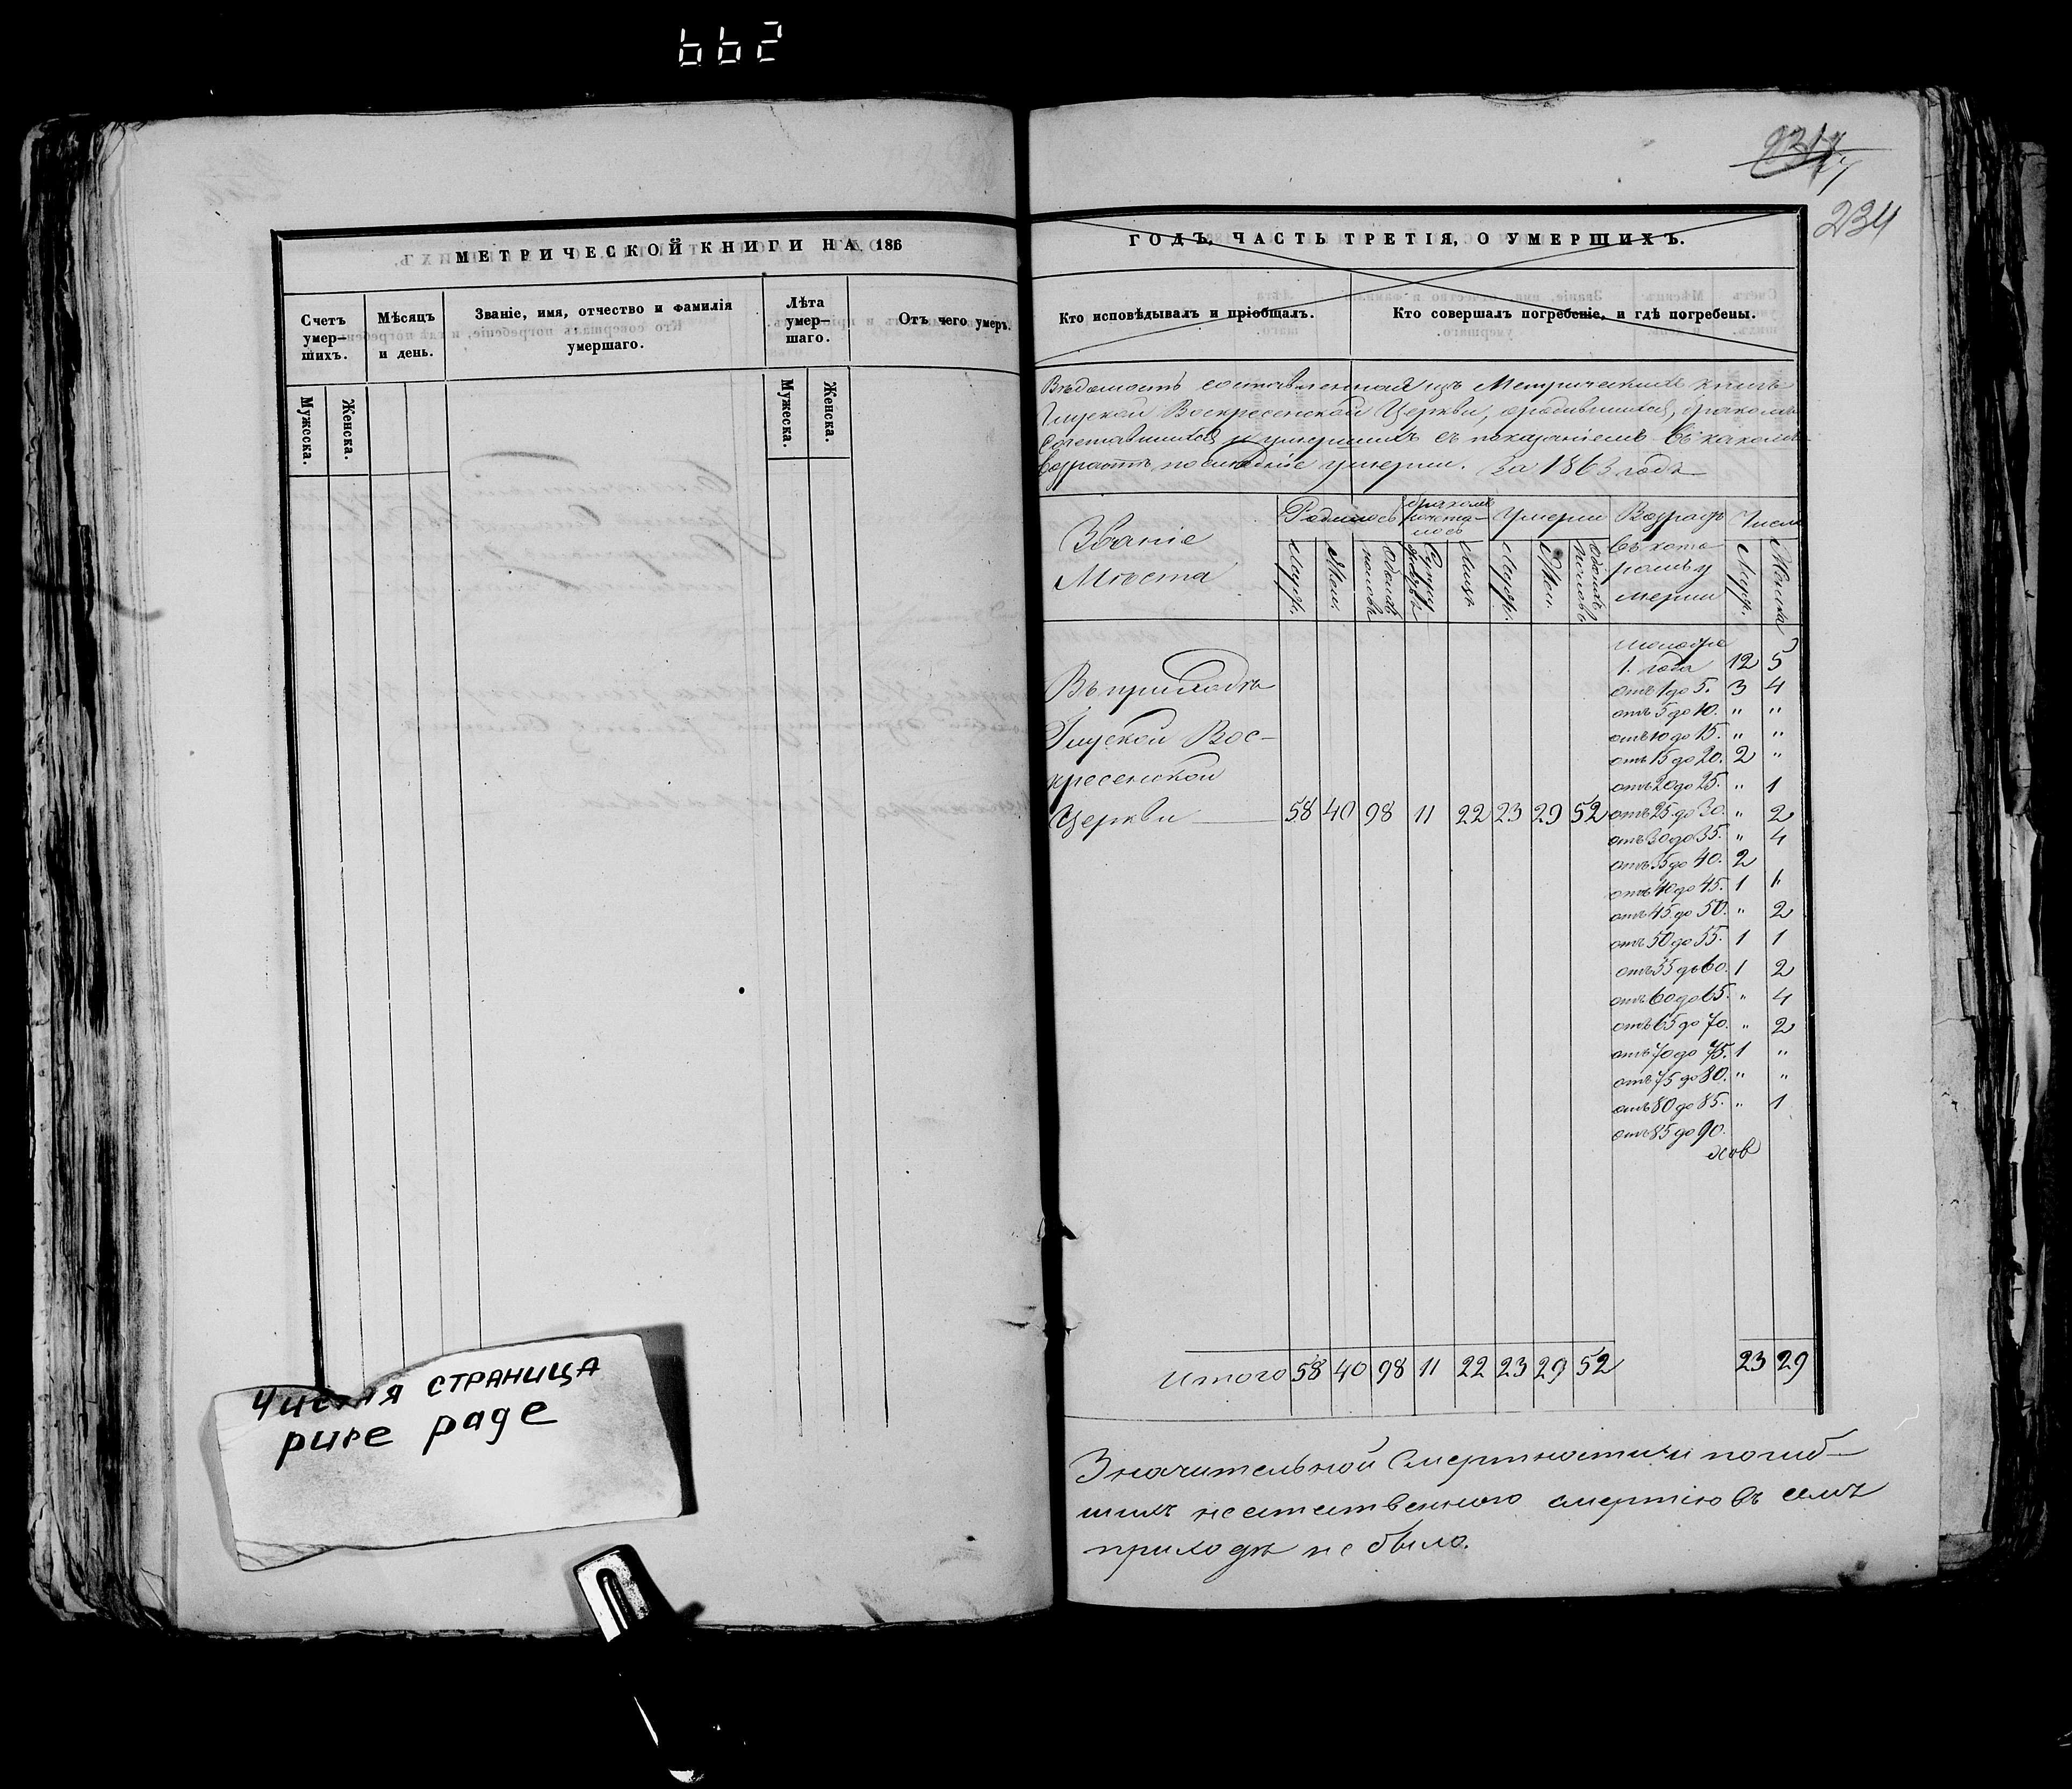 662
МЕТРИЧЕСКОЙ КНИГИ НА 186
Счетъ умер—шихъ.
Мѣсяцъ и день.
Званіе, имя, отчество и фамилія умершаго.
Лѣта умер—шаго.
Отъ чего умеръ.
Мужеска.
Женска.
Мужеска.
Женска.
Чистая страница
pure page
234
ГОДЪ, ЧАСТЬ ТРЕТІЯ, О УМЕРШИХЪ.
Кто исповѣдывалъ и пріобщалъ.
Кто совершалъ погребеніе, и гдѣ погребены.
Вѣдомость составленная изъ Метрическихъ книгъ
Глуской Воскресенской Церкви, о родившихся, бракомъ
сочетавшихся и умершихъ съ показаніемъ въ какомъ
возрастѣ послѣдніе умерли. За 1863 годъ
Званіе Мѣста
Родилось
бракомъ сочета—лось
Умерли
Возрастъ въ кото ромъ у мерли
Число
Муж.
Жен.
обоихъ половъ
Супружествъ
Лицъ
Муж.
Жен.
обоихъ половъ
Муж.
Женска
моложе
1. года 12 5
отъ 1 до 5. 3 4
отъ 5 до 10. " "
отъ 10 до 15. " "
отъ 15 до 20. 2 "
отъ 20 до 25. " 1
Въ приходѣ
Глуской Вос—
кресенской
Церкви 58 40 98 11 22 23 29 52 отъ 25 до 30. " 2
отъ 30 до 35. " 4
отъ 35 до 40. 2
отъ 40 до 45. 1 1
отъ 45 до 50. " 2
отъ 50 до 55. 1 1
отъ 55 до 60. 1 2
отъ 60 до 65. " 4
отъ 65 до 70. " 2
отъ 70 до 75. 1 "
отъ 75 до 80. " "
отъ 80 до 85. " 1
отъ 85 до 90.
Итого 58 40 98 11 22 23 29 52 23 29
Значительной Смертности и погиб—
шихъ неестественною смертію въ семъ
приходѣ не было.